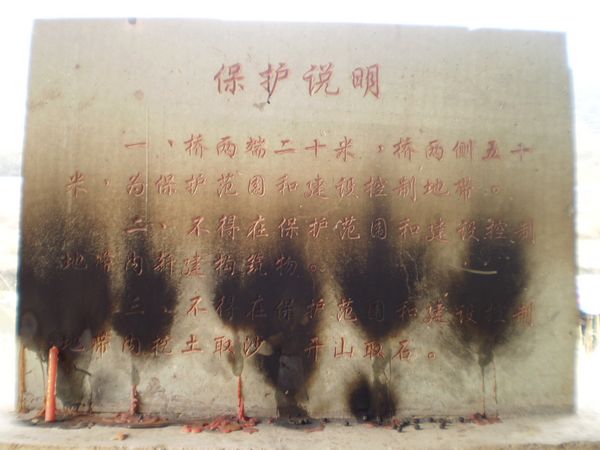 保护说明
一、桥两端二十米，桥两侧五十
米，为保护范围和建设控制地带。
二、不得在保护范围和建设控制
地带内新建构筑物。
三、不得在保护范围和建设控制
地带内挖土取沙、开山取石。